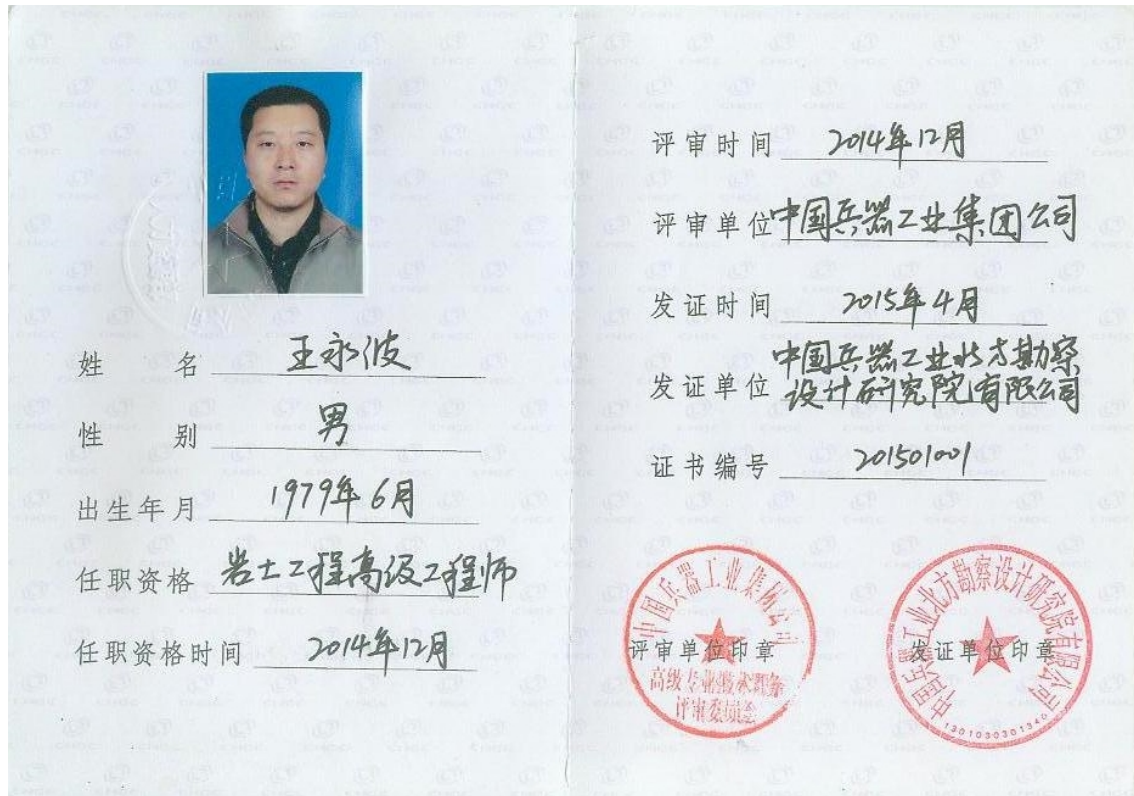 姓 名 王永波
性 别 男
出生年月 1979年6月
任职资格 岩土工程高级工程师
任职资格时间 2014年12月
评审时间 2014年12月
评审单位 中国兵器工业集团公司
发证时间 2015年4月
发证单位 中国兵器工业北方勘察
设计研究院有限公司
证书编号 201501001
中国兵器工业集团公司
评审单位印章
高级专业技术职务
评审委员会
中国兵器工业北方勘察设计研究院有限公司
发证单位印章
1301030301340